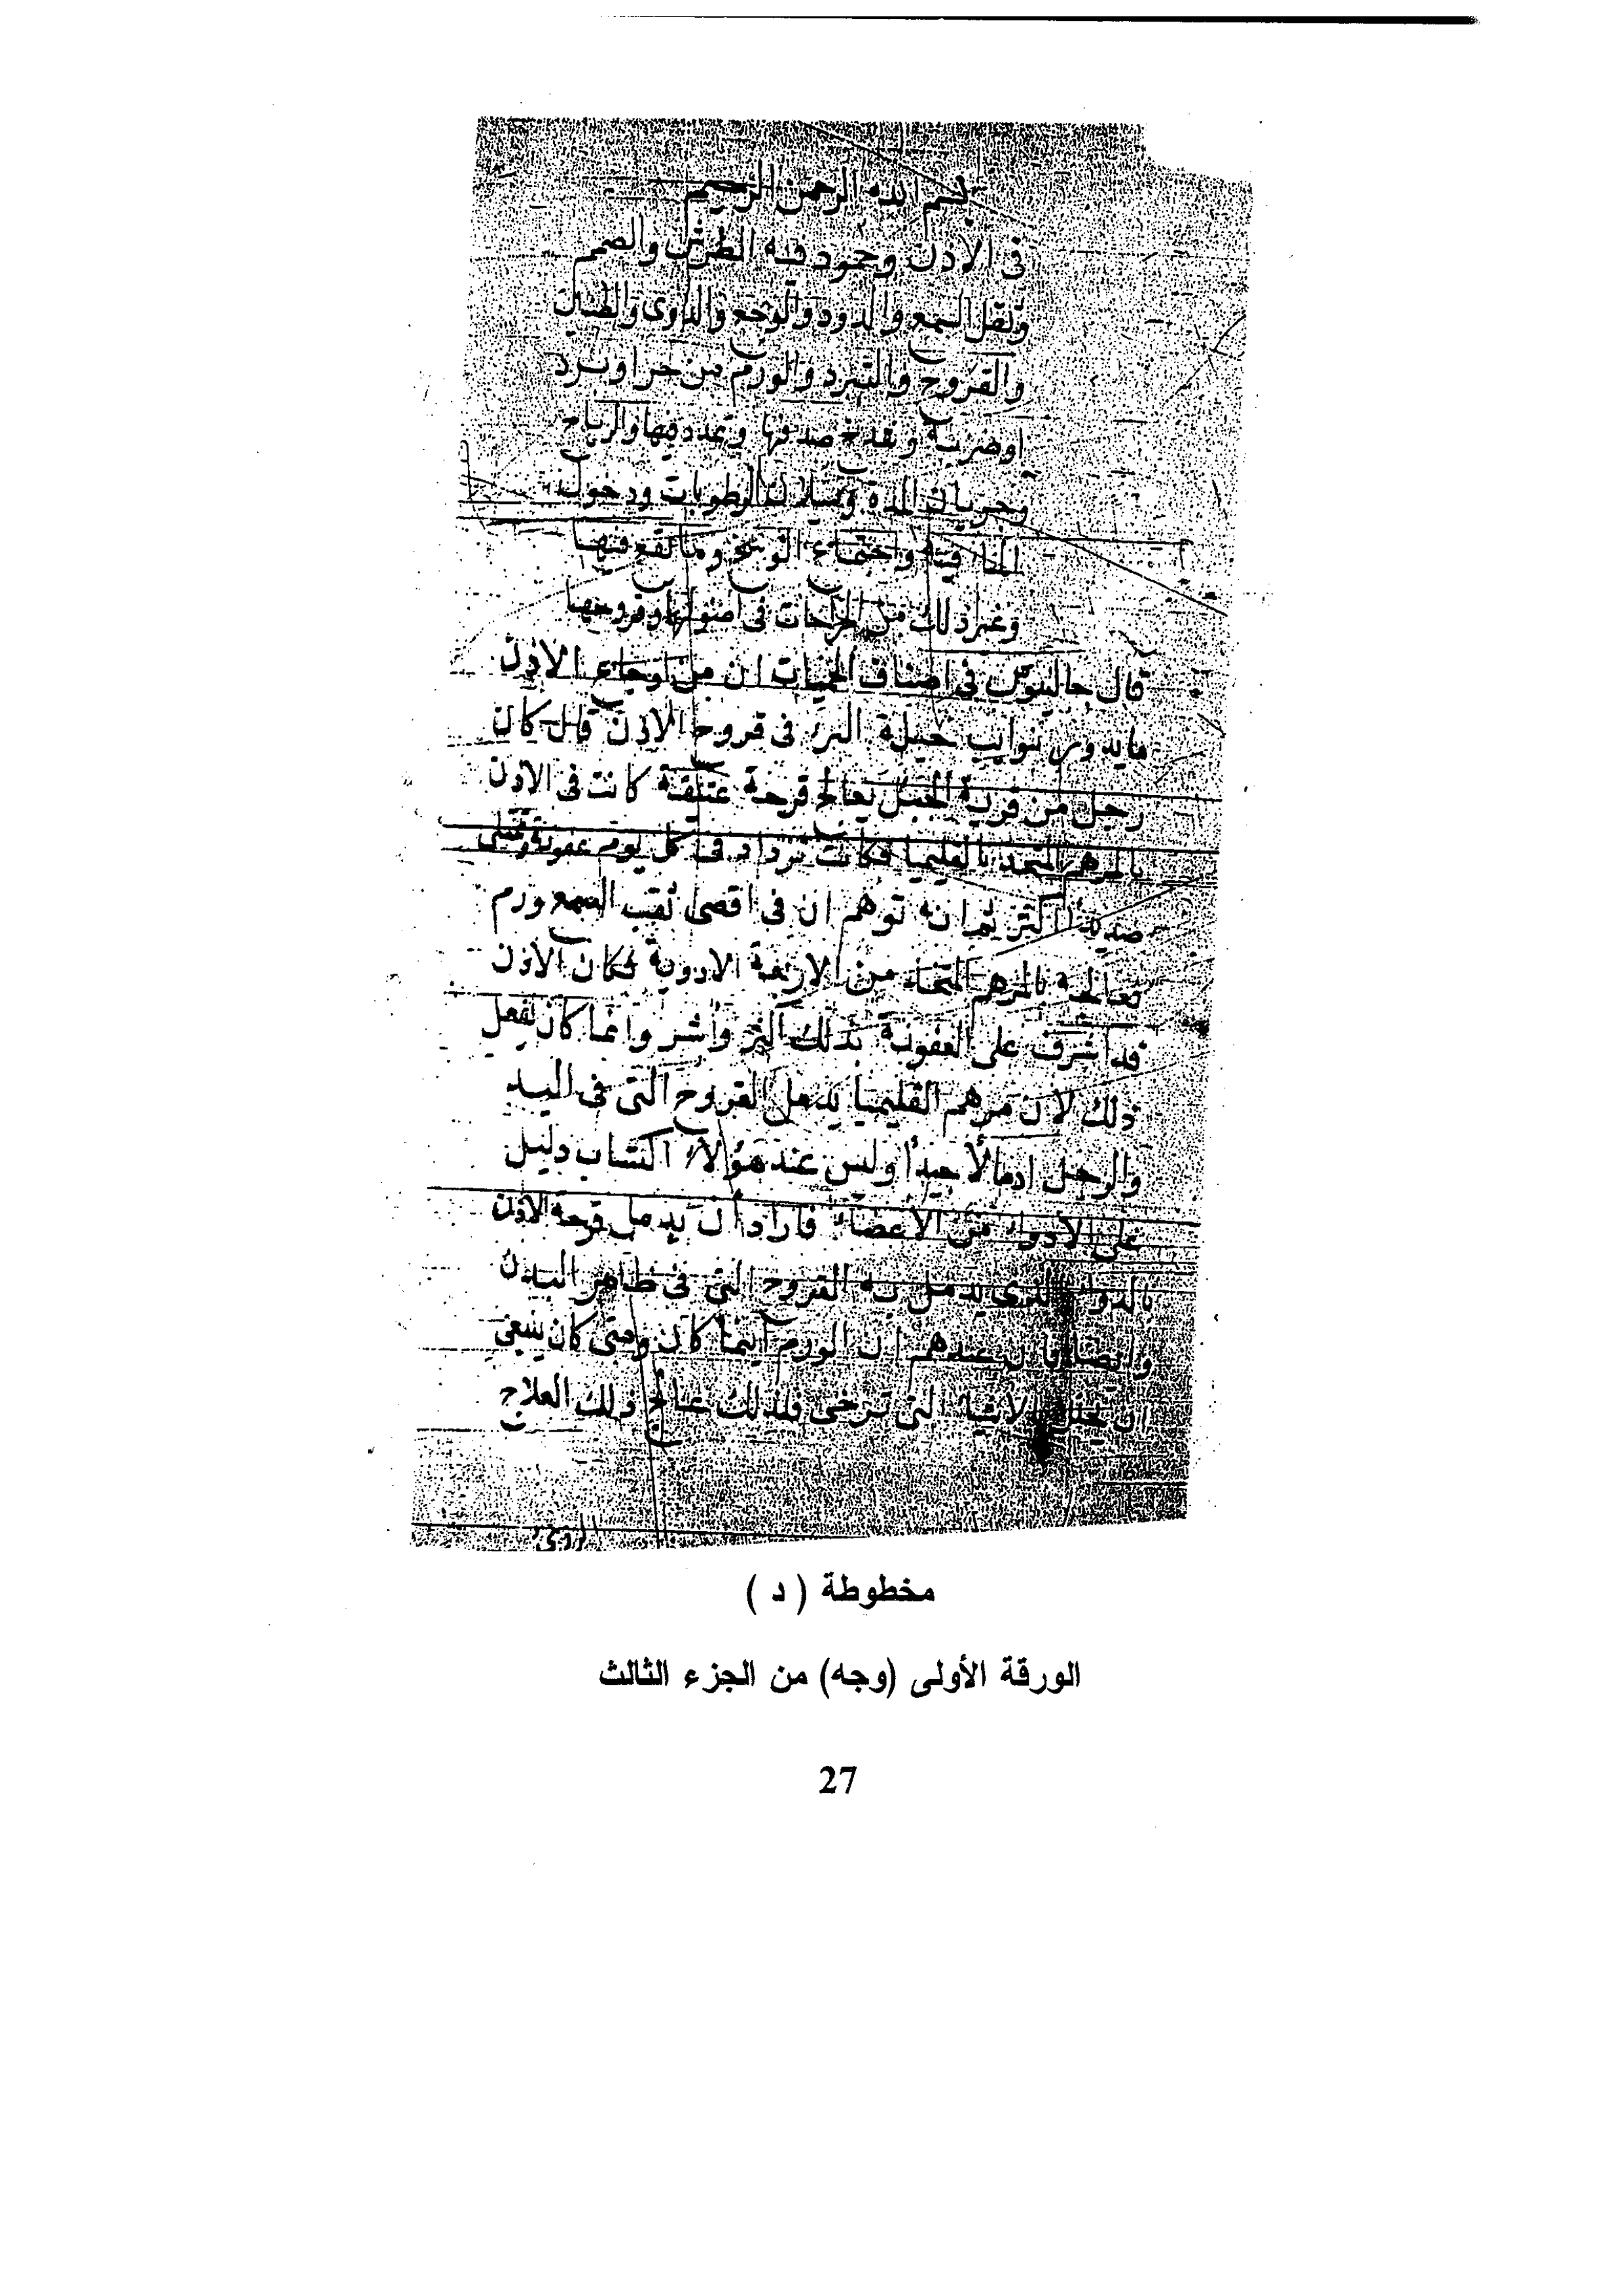 بسم الله الرحمن الرحيم
فى الاذن وجمود فيه الطرش والصمم
وثقل السمع والدود والوجع والدوى والطنين
والقروح والتبرد والورم من حر او برد
او ضربة وفدخ صدفها وتمدد فيها والرياح
وجريان المدة وسيلان الرطوبات ودخول
الماء فيه واجتماع الوسخ وما يقع فيها
وغير ذلك من الخراجات فى اصولها وقروحها
قال جالينوس فى اصناف الحميات ان من اوجاع الاذن
ما يدور بنوايب حيلة البرء فى قروح الاذن قال كان
رجل من قرية الجبل يعالج قرحة عتيقة كانت فى الاذن
بالمرهم المتخذ بالقليميا فكانت تزداد فى كل يوم عفونة وتمتلى
صديدا اكثر ثم انه توهم ان فى اقصى ثقب السمع ورم
فعالجه بالمرهم المتخذ من الاربعة الادوية فكان الاذن
قد اشرف على العفونة بذلك اكثر واشر وانما كان يفعل
ذلك لان مرهم القليميا يدمل القروح التى فى اليد
والرجل ادمالاً جيداً وليس عند هؤلاء اكتساب دليل
على الادواء من الاعضاء فاراد أن يدمل قرحة الاذن
بالدواء الذى يدمل به القروح التى فى ظاهر البدن
وايضا فان عندهم ان الورم اينما كان ومتى كان ينبغى
ان يحلل بالاشياء التى ترخى فلذلك عالج ذلك العلاج
الردى
مخطوطة ( د )
الورقة الأولى (وجه) من الجزء الثالث
27